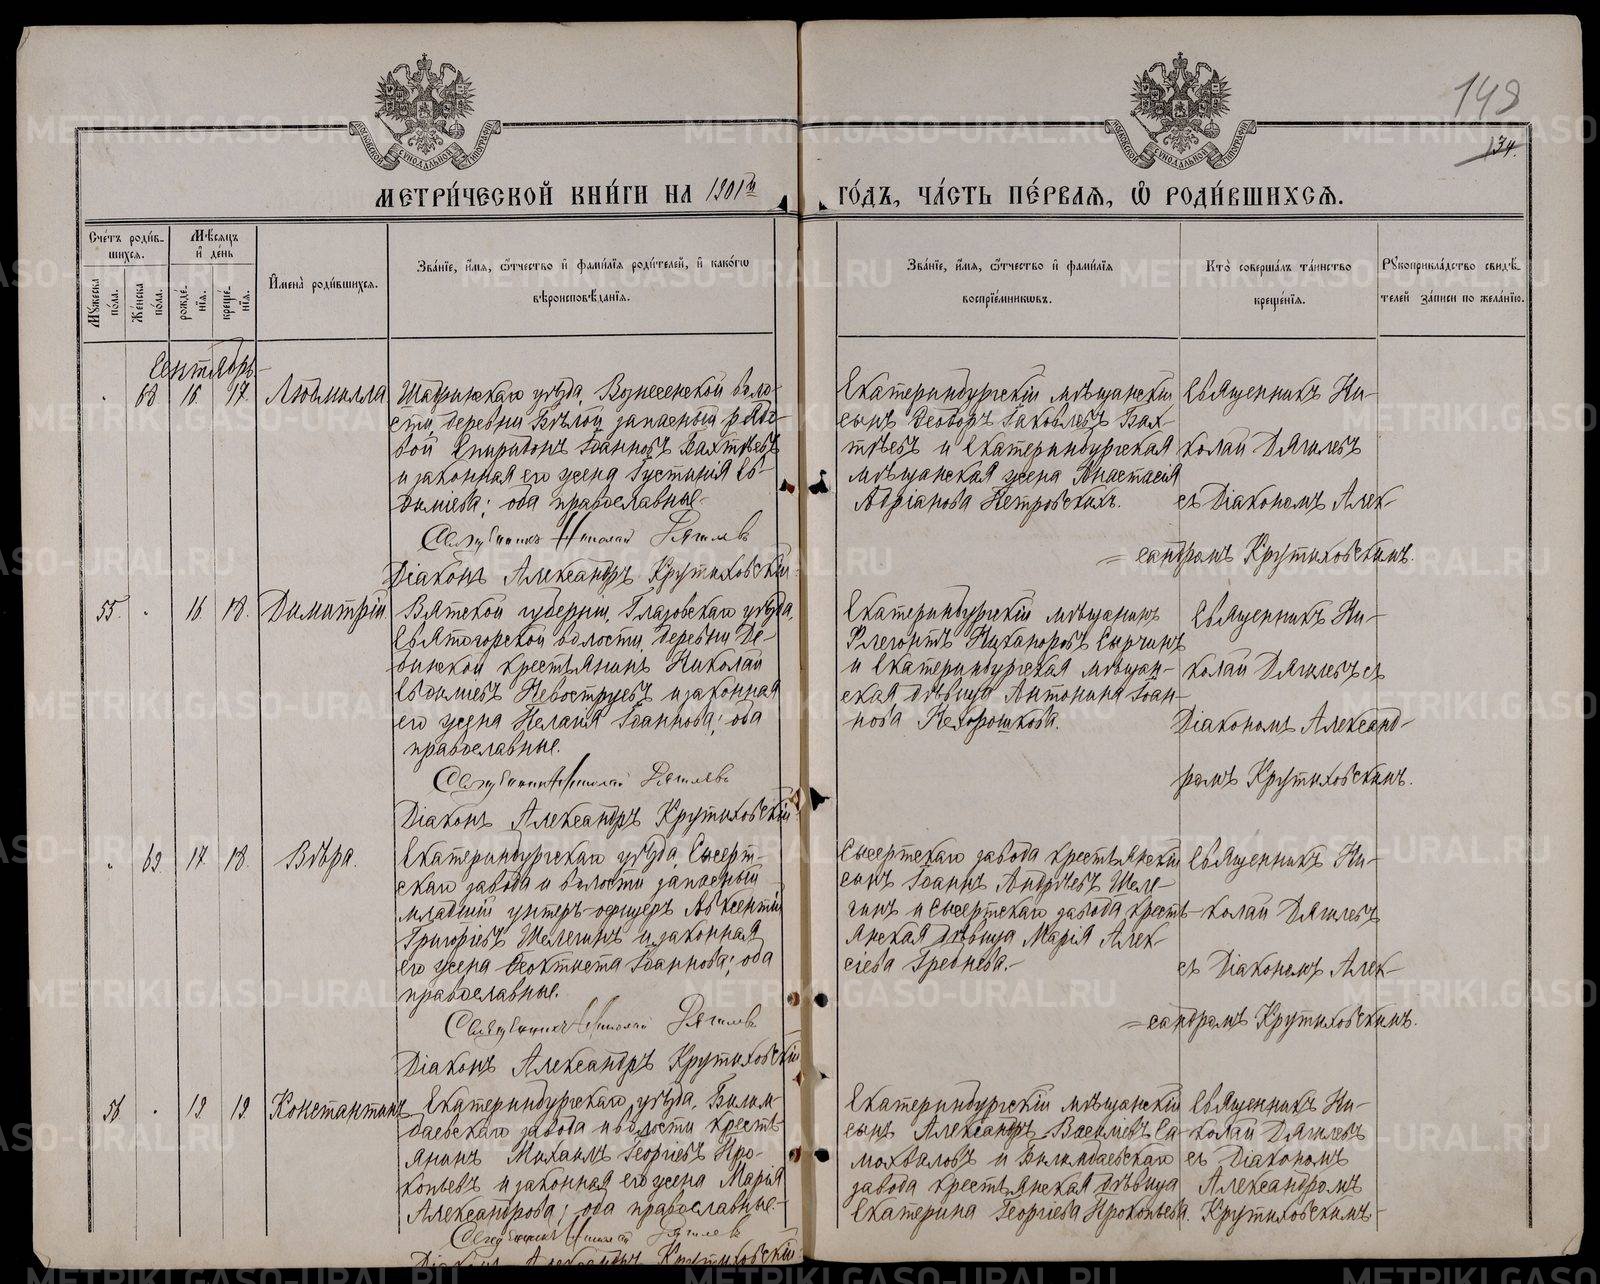 148
134.
МЕТРИ́ЧЕСКОЙ КНИ́ГИ НА 1901й ГО́ДЪ, ЧА́СТЬ ПЕ́РВАЯ, Ѡ҆ РОДИ́ВШИХСЯ.
Сче́тъ роди́в-
шихся.
Му́жеска по́ла.
Же́нска по́ла.
Мѣ́сяцъ
и҆ де́нь
рожде́-
нїя.
креще́-
нїя.
И҆мена̀ роди́вшихся.
Зва́нїе, и҆́мя, ѻ҆́тчество и҆ фами́лїя роди́телей, и҆ како́гѡ
вѣроисповѣ́данїя.
Зва́нїе, и҆́мя, ѻ҆́тчество и҆ фами́лїя
воспрїе́мниковъ.
Кто̀ соверша́лъ та́инство
креще́нїя.
Рꙋкоприкла́дство свидѣ́-
телей за́писи по жела́нїю.
Сентябрь
68 16 17. Людмилла
Шадринскаго уѣзда, Вознесенской воло-
сти, деревни Бѣлой запасный рядо-
вой Спиридонъ Іоанновъ Вахтѣевъ
и законная его жена Іустинія Ев-
диміева; оба православные.
Священникъ Николай Дягилевъ
Діаконъ Александръ Крутиховскій
Екатеринбургскій мѣщанскій
сынъ Ѳеодоръ Іаковлевъ Вах-
тѣевъ и Екатеринбургская
мѣщанская жена Анастасія
Адріанова Петровскихъ.
Священникъ Ни-
колай Дягилевъ
съ Діакономъ Алек-
сандромъ Крутиховскимъ.
55. 16. 18. Димитрій.
Вятской губерніи, Глазовскаго уѣзда,
Святогорской волости, деревни
крестьянинъ Николай
Невоструевъ и законная
его жена Пелагія Іоаннова; оба
православные.
Священникъ Николай Дягилевъ
Діаконъ Александръ Крутиховскій
Екатеринбургскій мѣщанинъ
Флегонтъ Никаноровъ Сырчинъ
и Екатеринбургская мѣщан-
ская дѣвица Антонина Іоан-
нова Нехорошкова.
Священникъ Ни-
колай Дягилевъ съ
Діакономъ Александ-
ромъ Крутиховскимъ.
69. 17. 18. Вѣра.
Екатеринбургскаго уѣзда, Сысерт-
скаго завода и волости запасный
младшій унтеръ-офицеръ Авксентій
Григоріевъ Шелегинъ и законная
его жена Ѳеоктиста Іоаннова; оба
православные.
Священникъ Николай Дягилевъ
Діаконъ Александръ Крутиховскій
Сысертскаго завода крестьянскій
сынъ Іоаннъ Андреевъ Шеле-
гинъ и Сысертскаго завода кресть-
янская дѣвица Марія Алек-
сіева Греднева.
Священникъ Ни-
колай Дягилевъ
съ Діакономъ Алек-
сандромъ Крутиховскимъ.
56 19 19. Константинъ
Екатеринбургскаго уѣзда, Билим-
баевскаго завода и волости кресть-
янинъ Михаилъ Георгіевъ Про-
копьевъ и законная его жена Марія
Александрова; оба православные.
Священникъ Николай Дягилевъ
Діаконъ Александръ Крутиховскій
Екатеринбургскій мѣщанскій
сынъ Александръ Василіевъ Са-
мохваловъ и Билимбаевскаго
завода крестьянская дѣвица
Екатерина Георгіева Прокопьева.
Священникъ Ни-
колай Дягилевъ
съ Діакономъ
Александромъ
Крутиховскимъ.
METRIKI.GASO-URAL.RU